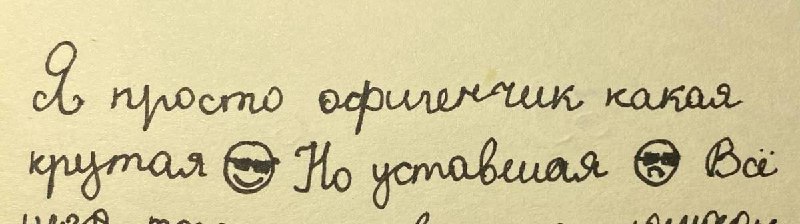 Я просто офигенчик какая
крутая 😎 Но уставшая Всё